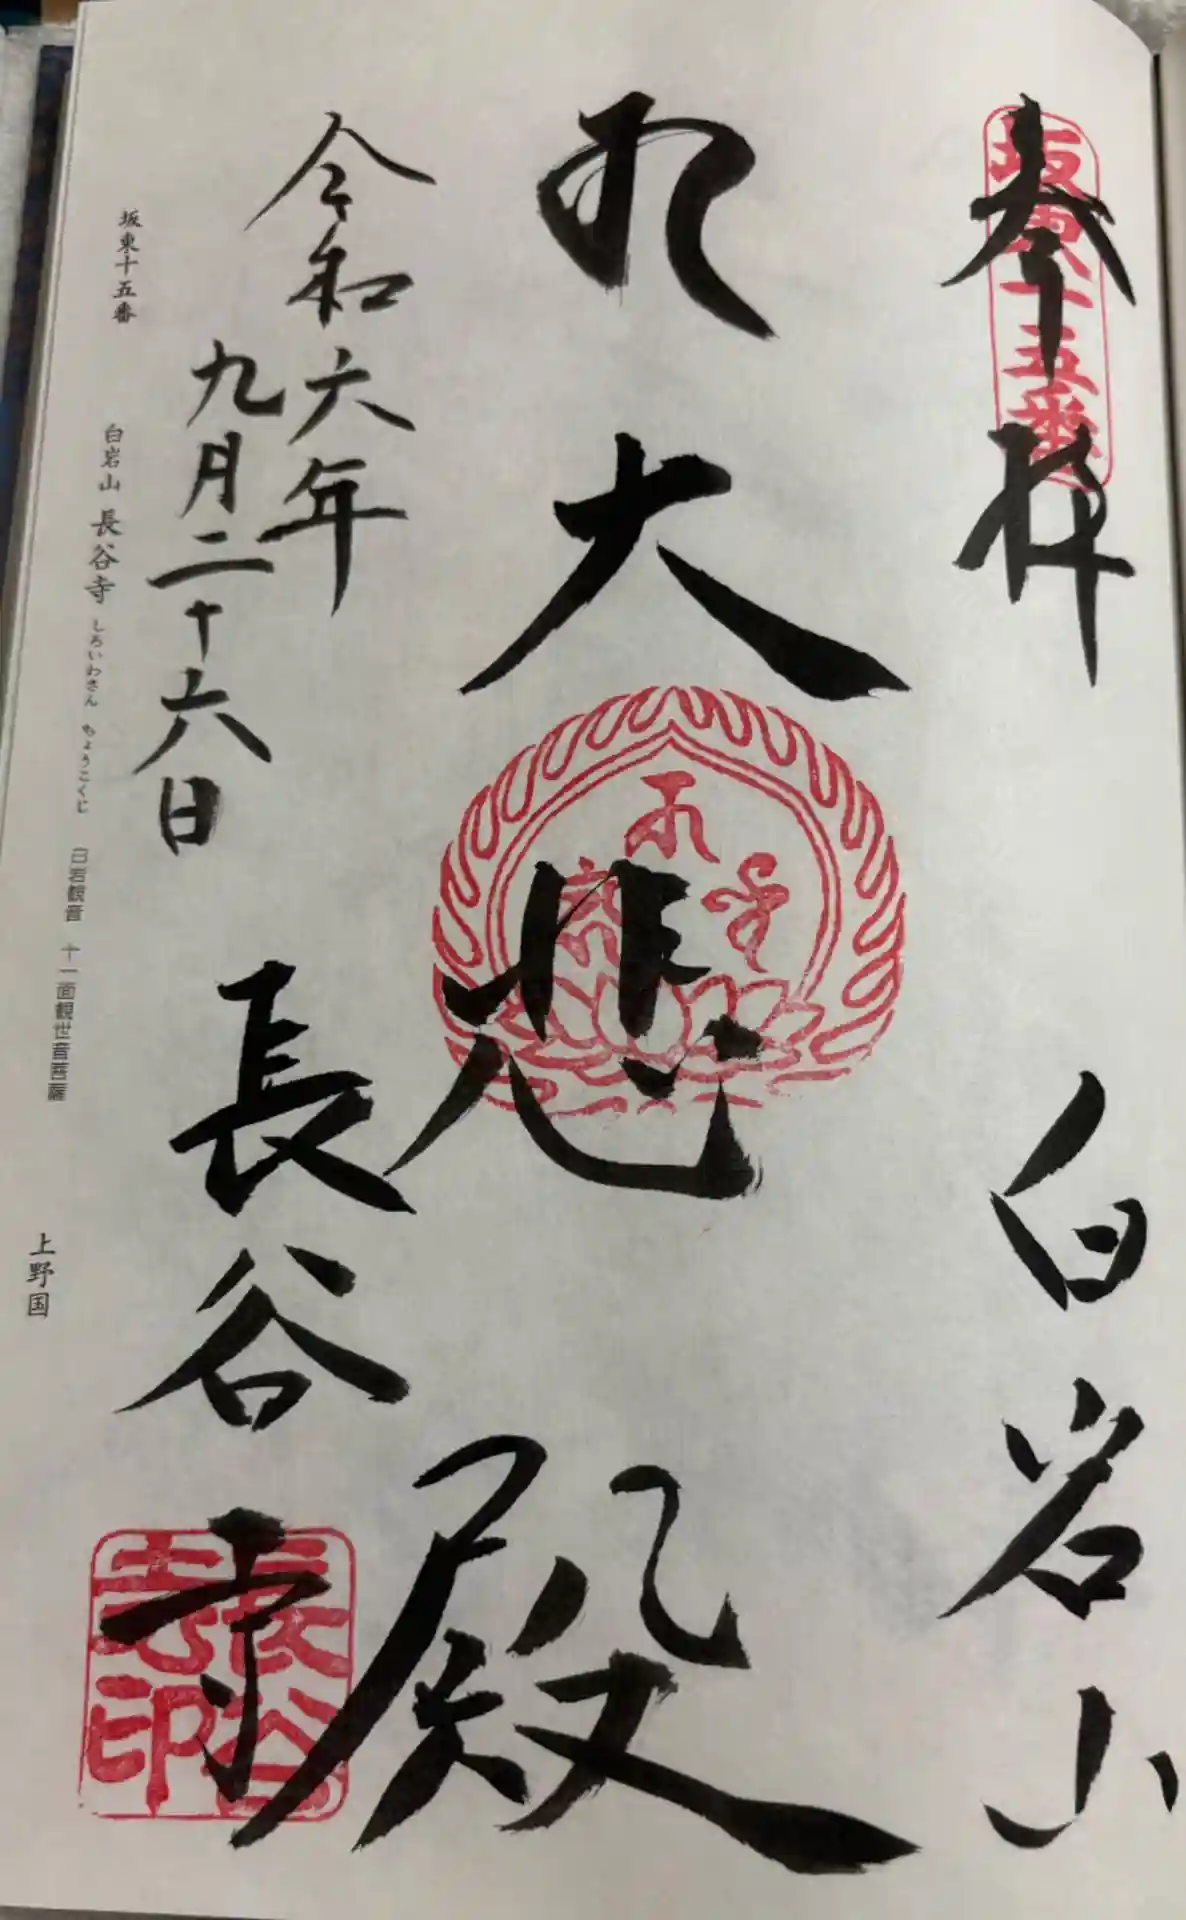 奉拝
坂東十五番
白岩山
大悲殿
令和六年
九月二十六日
長谷寺
長谷寺印
坂東十五番
白岩山 長谷寺 しろいわさん ちょうこくじ 白岩観音 十一面観世音菩薩
上野国